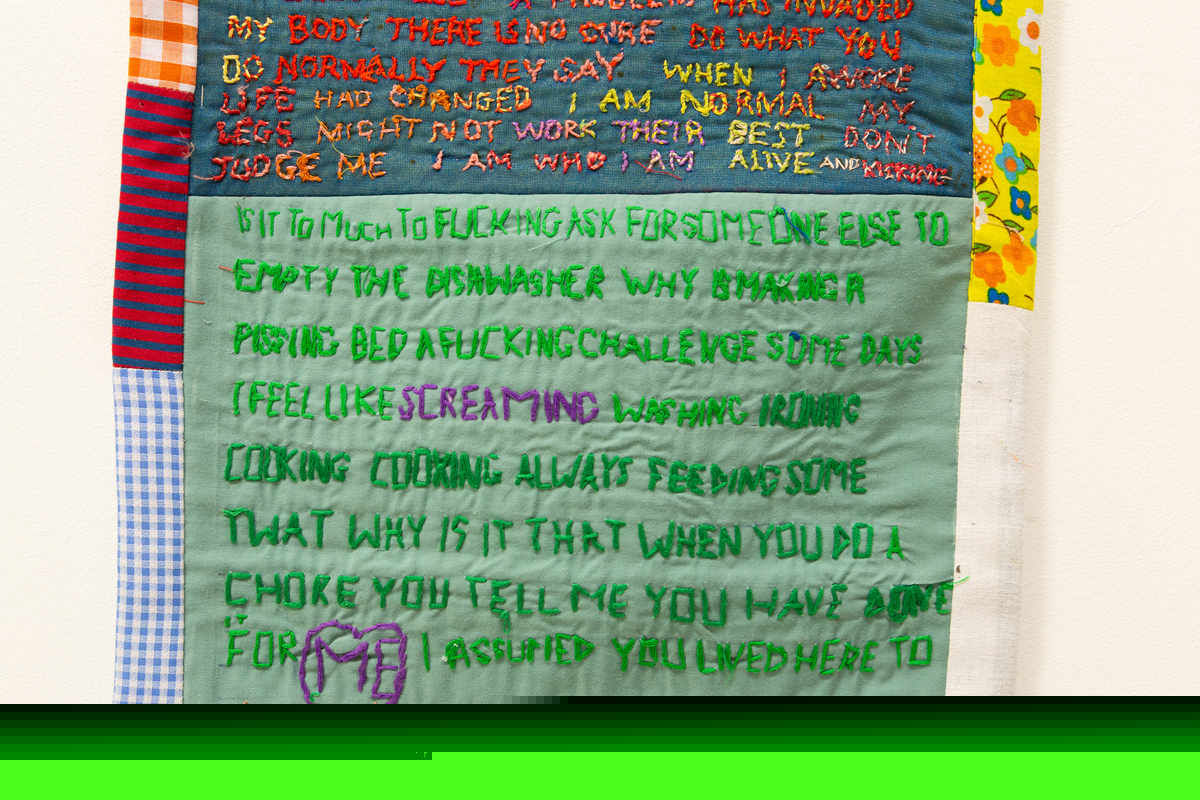 A PROBLEM HAS INVADED
MY BODY THERE IS NO CURE DO WHAT YOU
DO NORMALLY THEY SAY WHEN I AWOKE
LIFE HAD CHANGED I AM NORMAL MY
LEGS MIGHT NOT WORK THEIR BEST DON'T
JUDGE ME I AM WHO I AM ALIVE AND KICKING
IS IT TO MUCH TO FUCKING ASK FOR SOMEONE ELSE TO
EMPTY THE DISHWASHER WHY IS MAKING A
PISSING BED A FUCKING CHALLENGE SOME DAYS
I FEEL LIKE SCREAMING WASHING IRONING
COOKING COOKING ALWAYS FEEDING SOME
TWAT WHY IS IT THAT WHEN YOU DO A
CHORE YOU TELL ME YOU HAVE DONE
FOR ME I ASSUMED YOU LIVED HERE TO